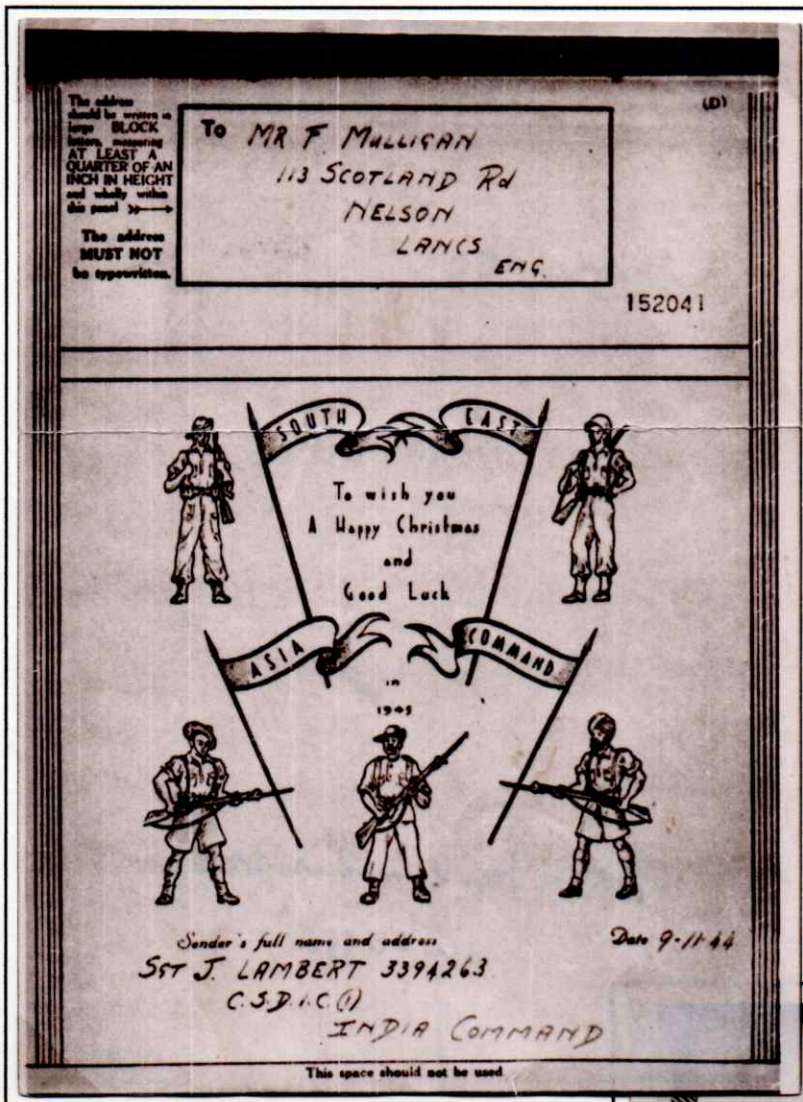 The address
should be written in
large BLOCK
letters, measuring
AT LEAST A
QUARTER OF AN
INCH IN HEIGHT
and wholly within
this panel
The address
MUST NOT
be typewritten.
(D)
To MR F. MULLIGAN
113 SCOTLAND Rd
NELSON
LANCS
ENG.
152041
SOUTH EAST
To wish you
A Happy Christmas
and
Good Luck
ASIA COMMAND
in
1945
Sender's full name and address
Date 9-11-44
SGT J. LAMBERT 3394263
C.S.D.I.C. (I)
INDIA COMMAND
This space should not be used